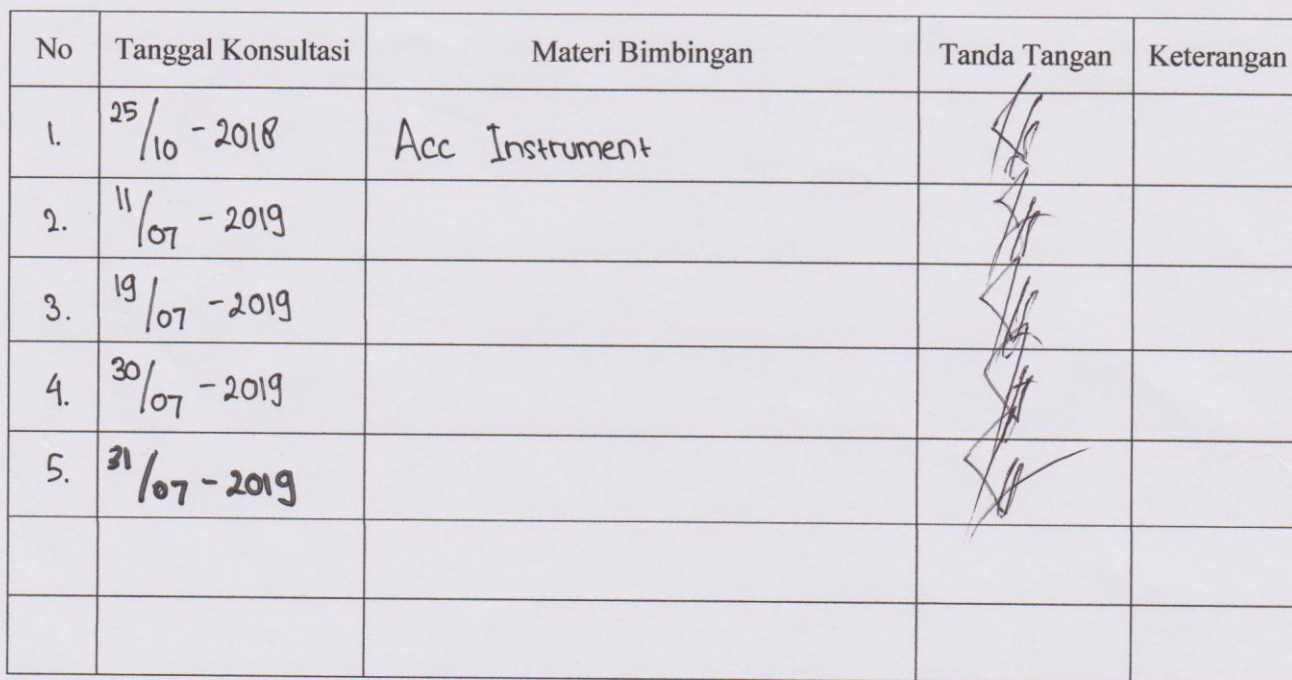 No Tanggal Konsultasi Materi Bimbingan Tanda Tangan Keterangan
1. 25/10 - 2018 Acc Instrument
2. 11/07 - 2019
3. 19/07 - 2019
4. 30/07 - 2019
5. 31/07 - 2019